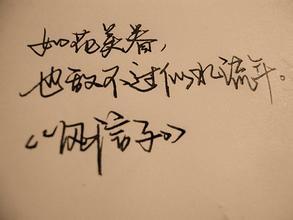 如花美眷，
也敌不过似水流年。
《“风信子”》